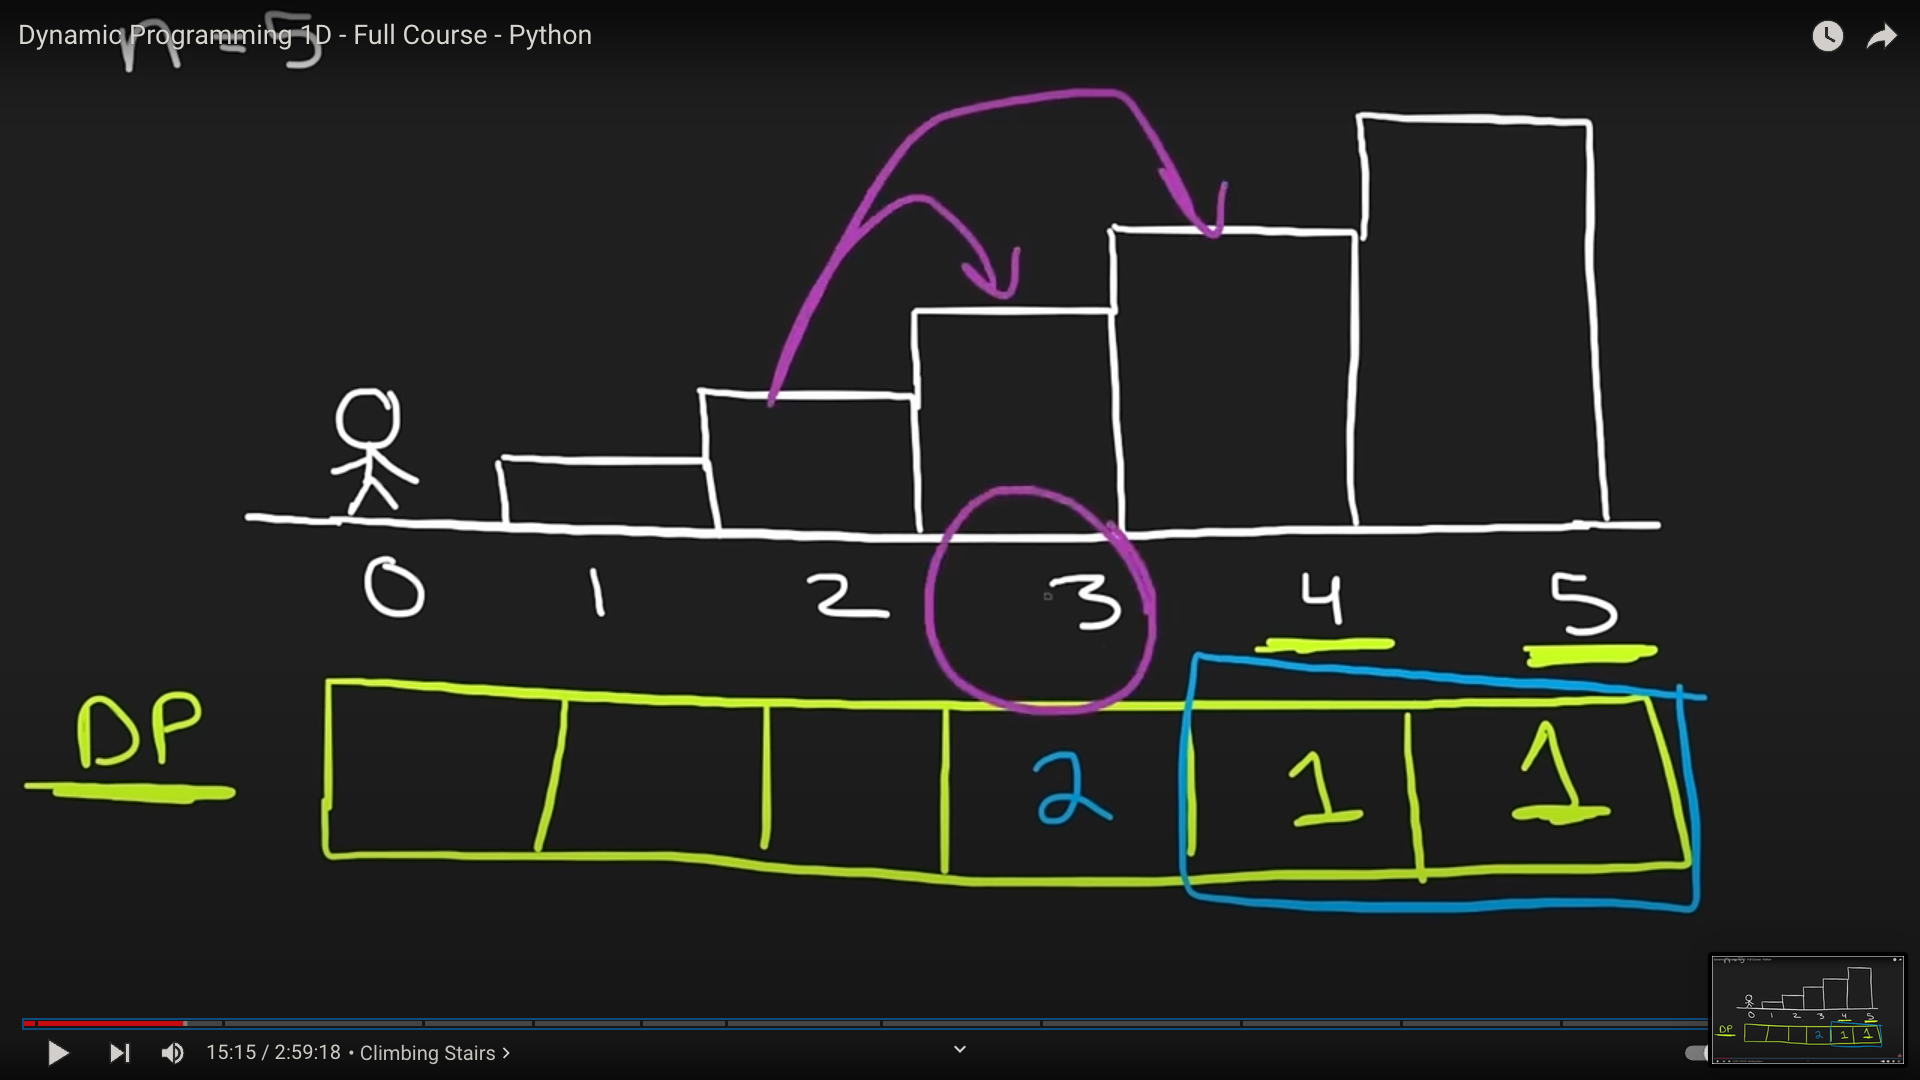 Dynamic Programming 1D - Full Course - Python
n = 5
0 1 2 3 4 5
DP 2 1 1
15:15 / 2:59:18 • Climbing Stairs >